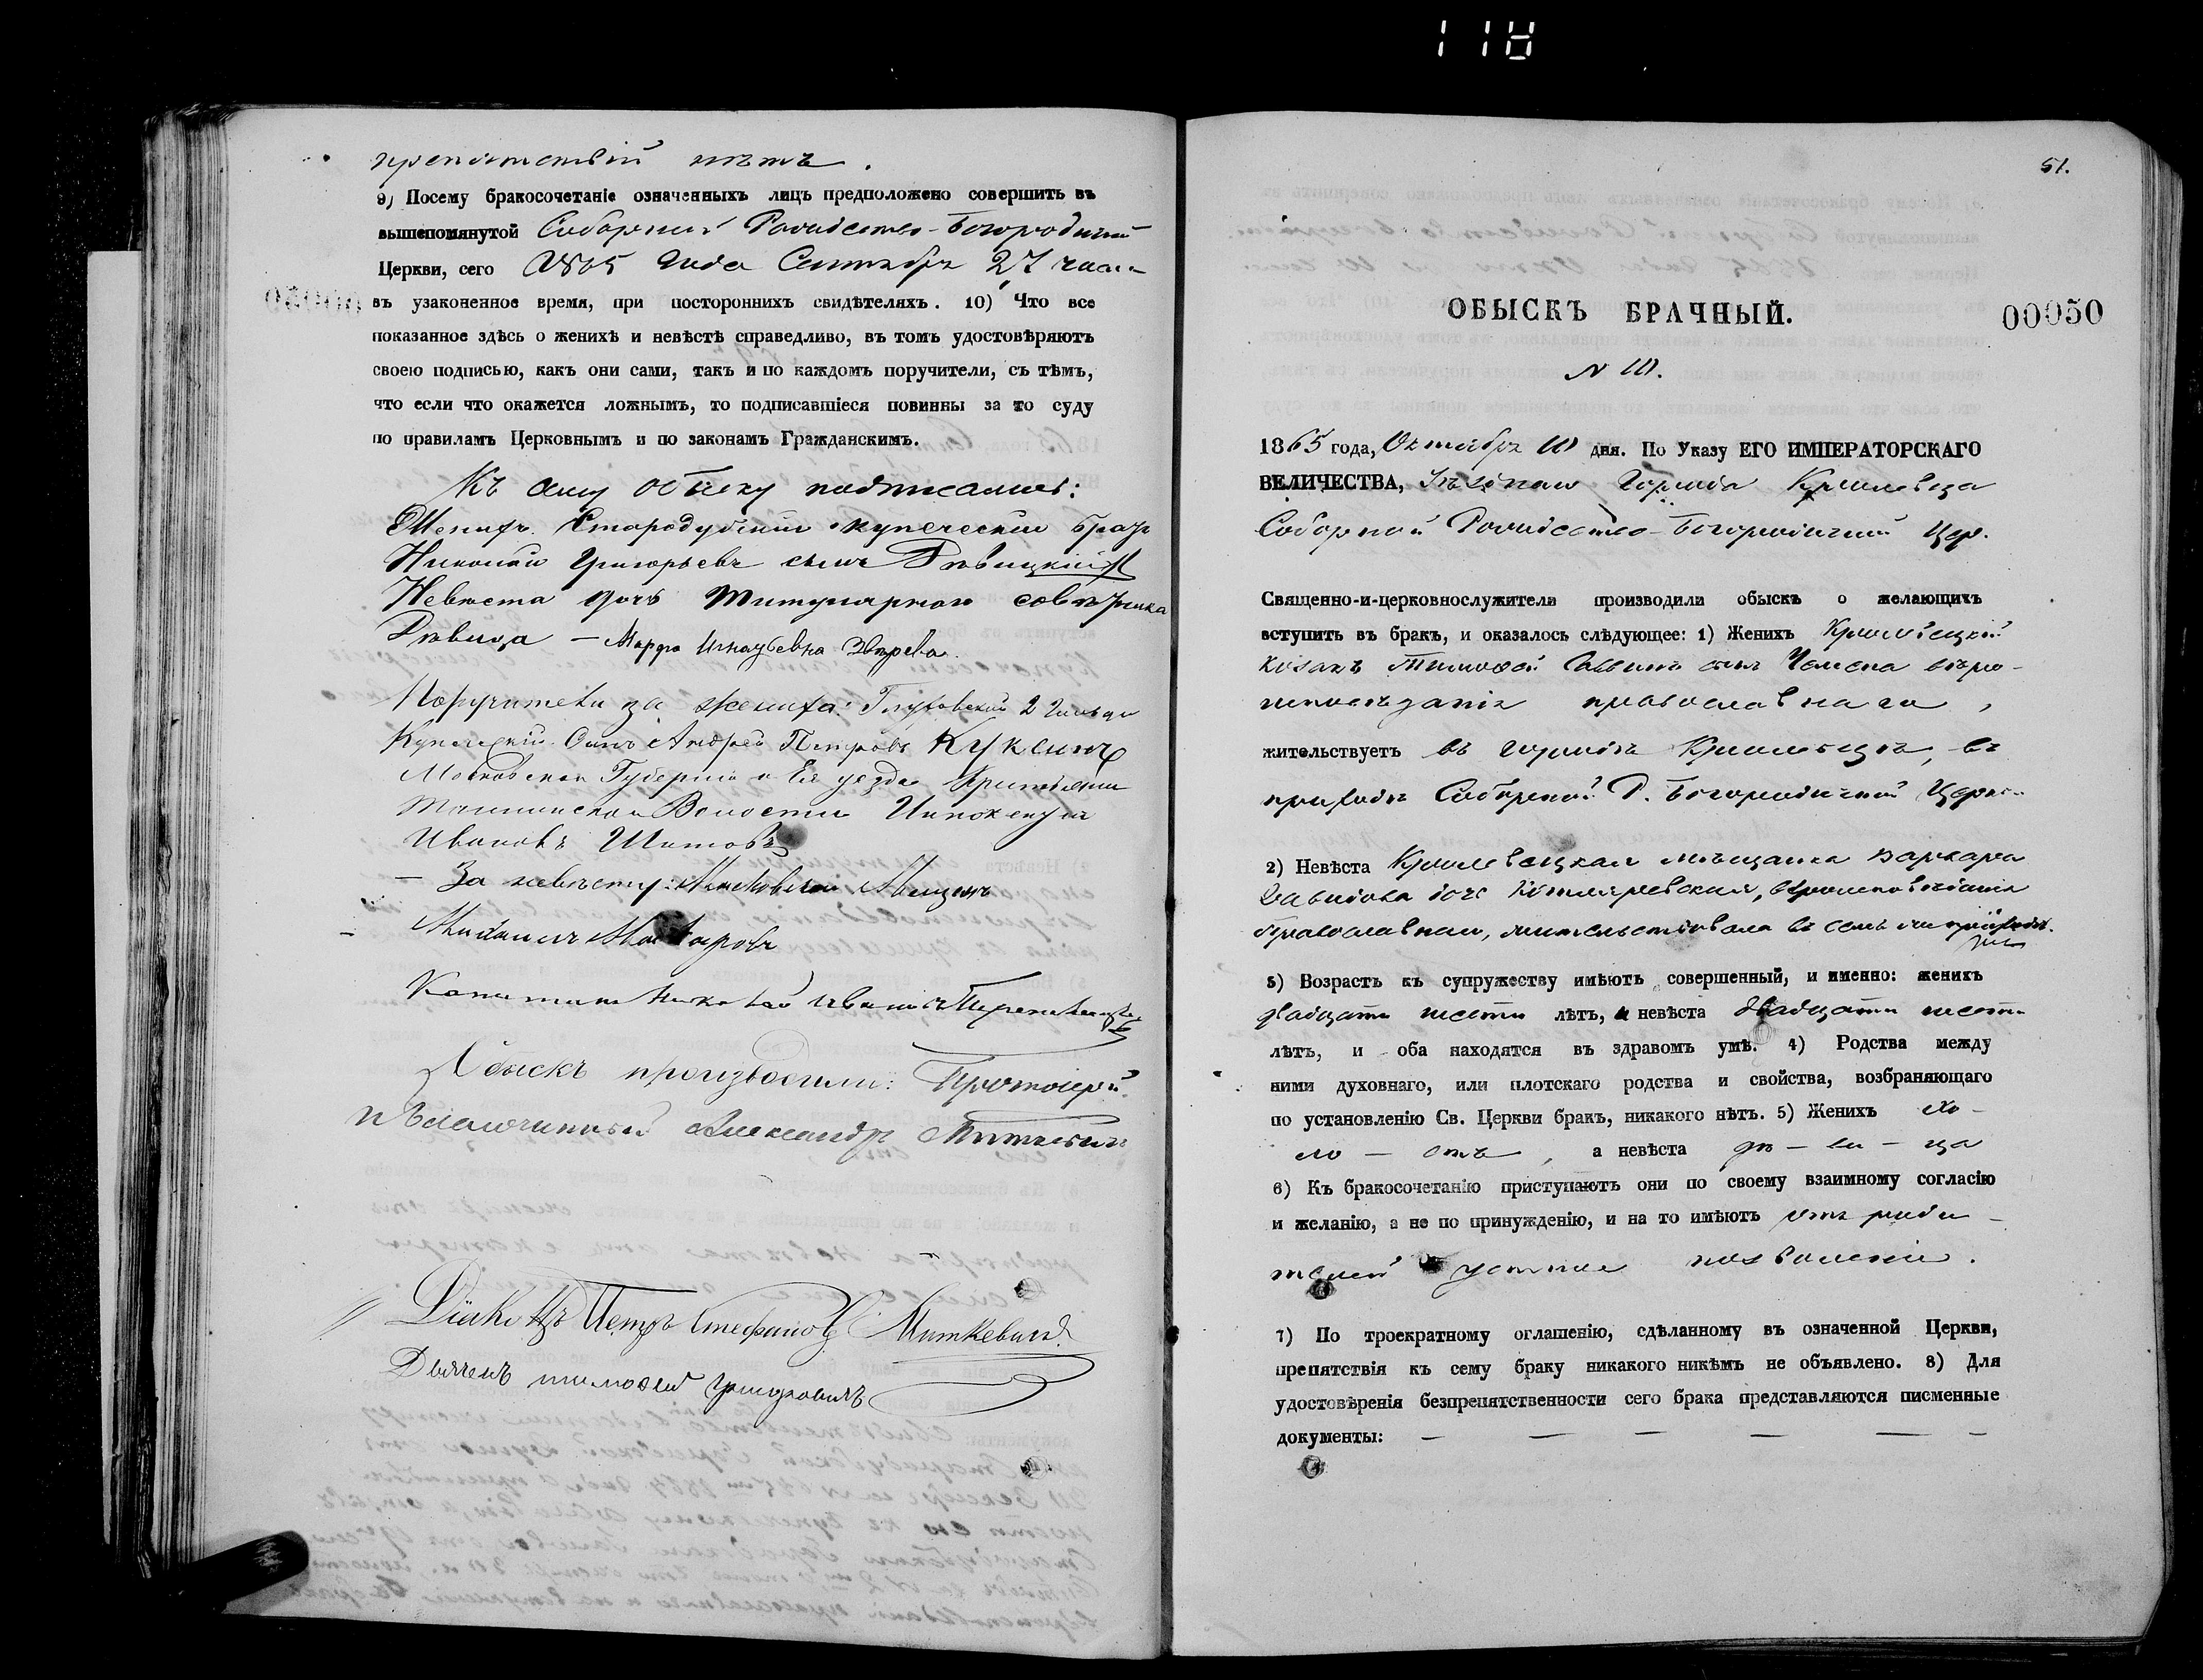 118
препятствій нѣтъ.
9) Посему бракосочетаніе означенныхъ лицъ предположено совершить въ
вышепомянутой Соборной Рождество-Богородичной
Церкви, сего 1865 года Сентября 27 числа
въ узаконенное время, при постороннихъ свидѣтеляхъ. 10) Что все
показанное здѣсь о женихѣ и невѣстѣ справедливо, въ томъ удостовѣряютъ
своею подписью, какъ они сами, такъ и по каждомъ поручители, съ тѣмъ,
что если что окажется ложнымъ, то подписавшіеся повинны за то суду
по правиламъ Церковнымъ и по законамъ Гражданскимъ.
Къ сему обыску подписались:
Женихъ Стародубскій купеческій братъ
Николай Григорьевъ сынъ
Невѣста дочь титулярнаго совѣтника
Дѣвица — Марфа Игнатьевна
Поручители за жениха: Глуховскій 2 Гильдіи
Купеческій Сынъ Андрей Петровъ Куксинъ
Московской Губерніи и Ея уезда
Волости Инокентій
Ивановъ Шитовъ
— За невѣсту:
Михаилъ
Капитанъ Николай Ивановъ
Обыскъ производили: Протоіерей
и Благочинный Александръ
Діаконъ Петръ Стефановъ Миткевичъ
Дьячекъ Тимофей Григоровичъ
51.
ОБЫСКЪ БРАЧНЫЙ.
00050
N 10.
1865 года, Октября 10 дня. По Указу ЕГО ИМПЕРАТОРСКАГО
ВЕЛИЧЕСТВА, Города Кролевца
Соборной Рождество-Богородичной Цер.
Священно-и-церковнослужители производили обыскъ о желающихъ
вступить въ бракъ, и оказалось слѣдующее: 1) Женихъ Кролевецкій
козакъ Тимофей Саввинъ сынъ вѣро-
исповѣданія православнаго,
жительствуетъ въ городѣ Кролевцѣ, въ
приходѣ Соборной Р. Богородичной Церкви
2) Невѣста Кролевецкая мѣщанка Варвара
Давидова дочь Котляревская, вѣроисповѣданія
православнаго, жительствовала въ семъ же приходѣ.
3) Возрастъ къ супружеству имѣютъ совершенный, и именно: женихъ
двадцати шести лѣтъ, а невѣста двадцати шести
лѣтъ, и оба находятся въ здравомъ умѣ. 4) Родства между
ними духовнаго, или плотскаго родства и свойства, возбраняющаго
по установленію Св. Церкви бракъ, никакого нѣтъ. 5) Женихъ хо-
ло — стъ, а невѣста дѣ — ви — ца
6) Къ бракосочетанію приступаютъ они по своему взаимному согласію
и желанію, а не по принужденію, и на то имѣютъ отъ роди-
телей устное позволеніе.
7) По троекратному оглашенію, сдѣланному въ означенной Церкви,
препятствія къ сему браку никакого никѣмъ не объявлено. 8) Для
удостовѣренія безпрепятственности сего брака представляются писменные
документы: — — — — — —